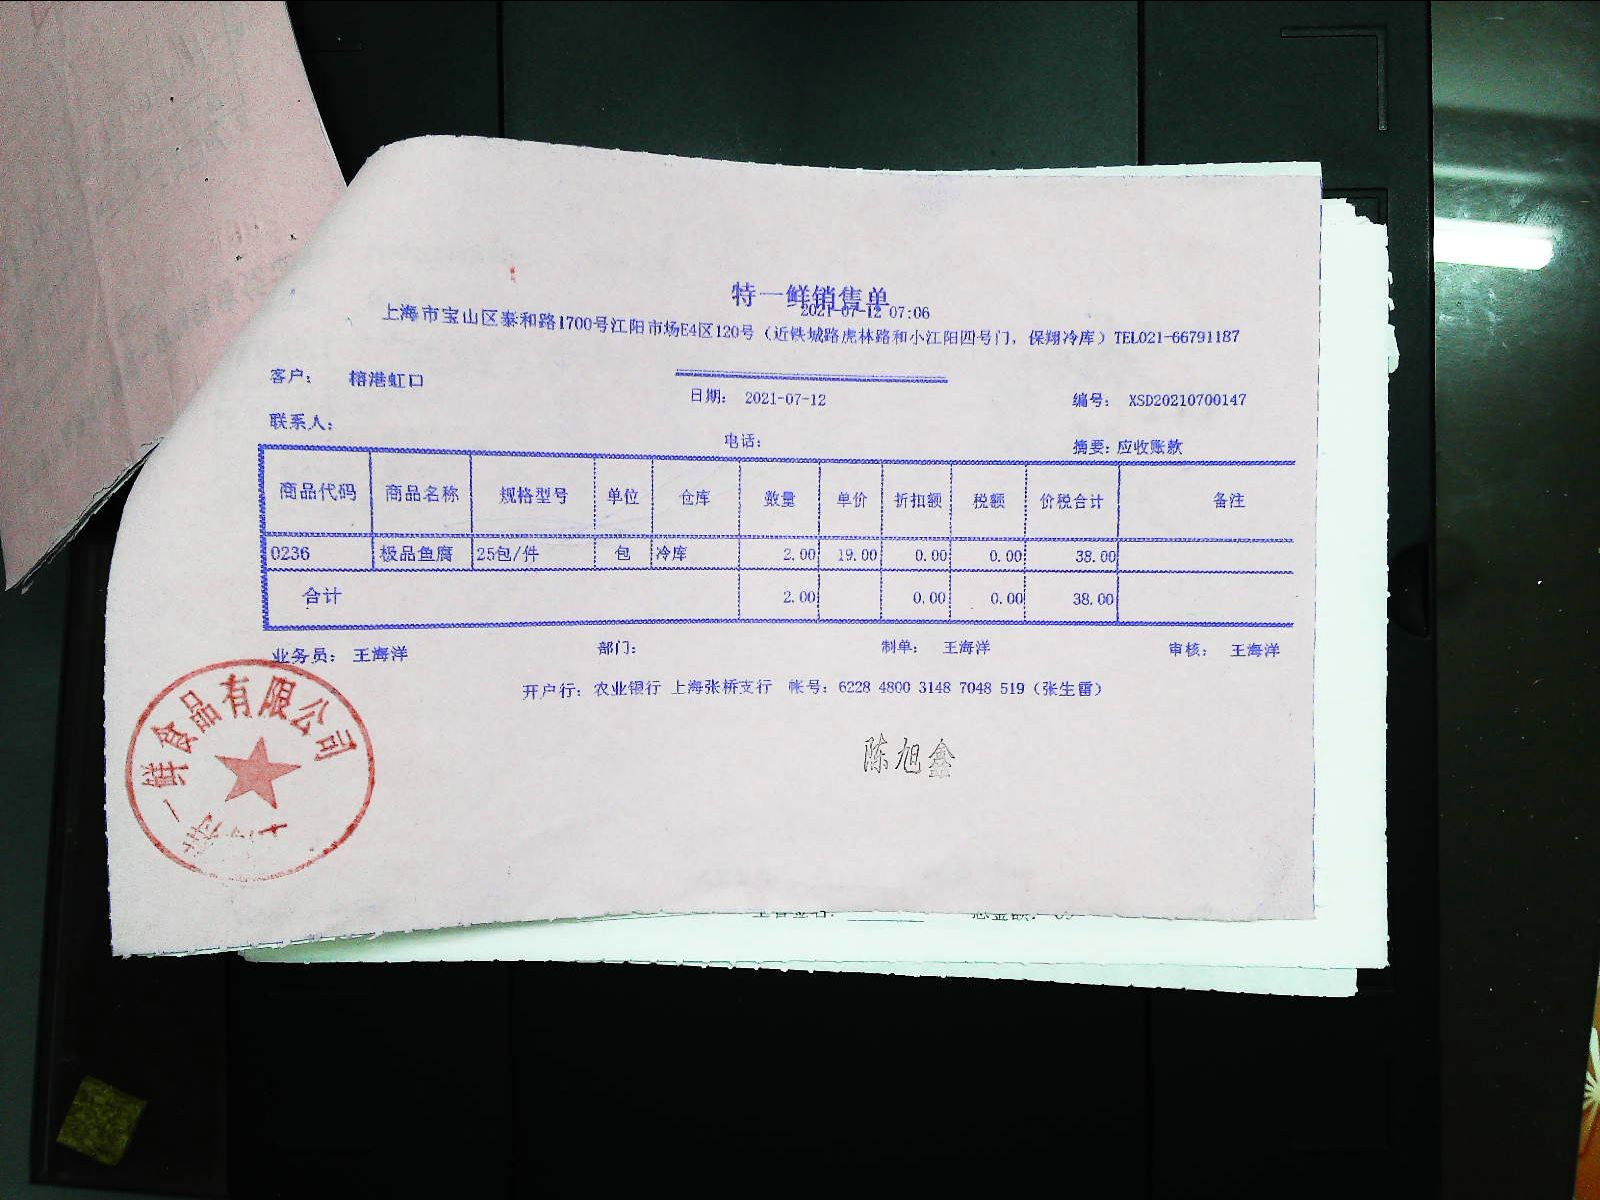 特一鲜销售单
2021-07-12 07:06
上海市宝山区泰和路1700号江阳市场E4区120号（近铁城路虎林路和小江阳四号门，保翔冷库）TEL021-66791187
客户： 榕港虹口
日期： 2021-07-12
编号： XSD20210700147
联系人：
电话：
摘要：应收账款
商品代码 商品名称 规格型号 单位 仓库 数量 单价 折扣额 税额 价税合计 备注
0236 极品鱼腐 25包/件 包 冷库 2.00 19.00 0.00 0.00 38.00
合计 2.00 0.00 0.00 38.00
业务员： 王海洋 部门： 制单： 王海洋 审核： 王海洋
开户行：农业银行 上海张桥支行 帐号：6228 4800 3148 7048 519（张生雷）
陈旭鑫
特一鲜食品有限公司